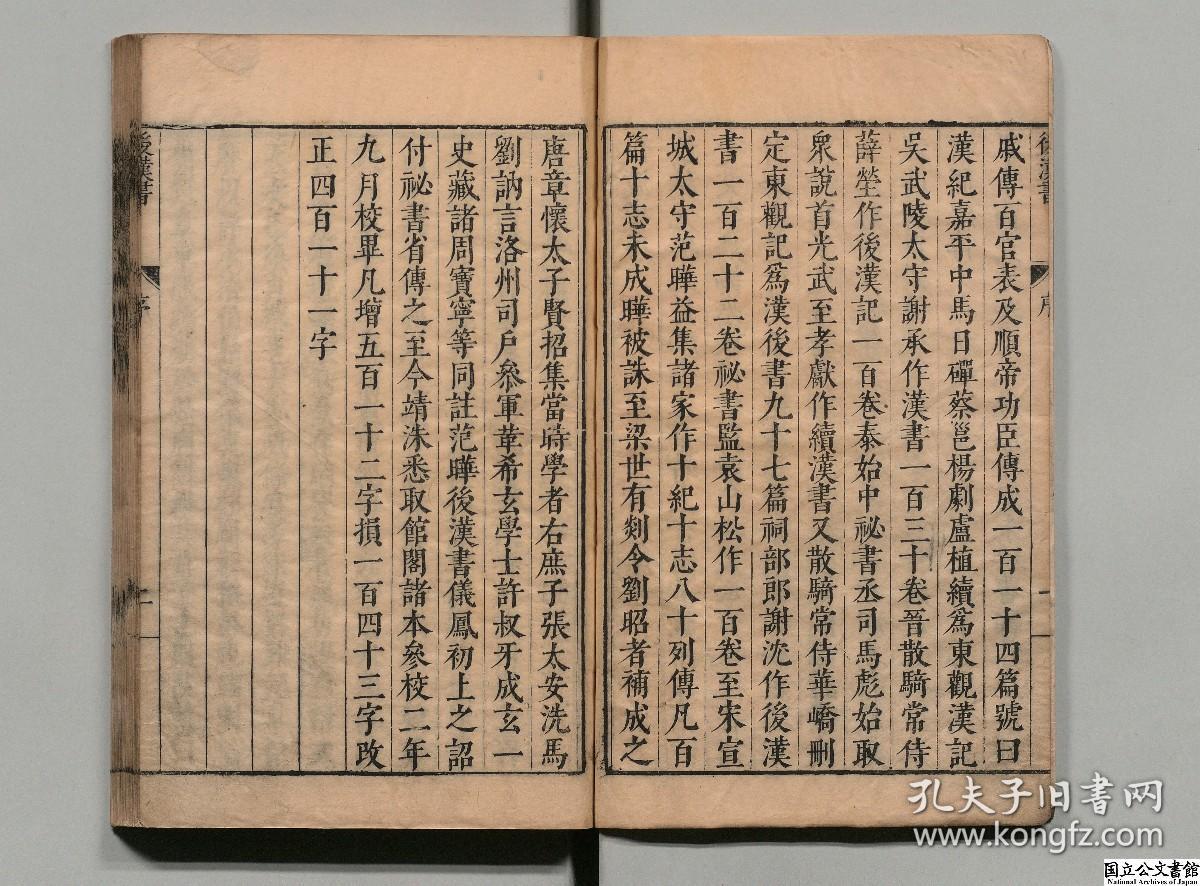 後漢書
序
一
戚傳百官表及順帝功臣傳成一百一十四篇號曰
漢紀嘉平中馬日磾蔡邕楊劇盧植續爲東觀漢記
吳武陵太守謝承作漢書一百三十卷晉散騎常侍
薛瑩作後漢記一百卷泰始中祕書丞司馬彪始取
衆說首光武至孝獻作續漢書又散騎常侍華嶠刪
定東觀記爲漢後書九十七篇祠部郎謝沈作後漢
書一百二十二卷祕書監袁山松作一百卷至宋宣
城太守范曄益集諸家作十紀十志八十列傳凡百
篇十志未成曄被誅至梁世有剡令劉昭者補成之
唐章懷太子賢招集當時學者右庶子張太安洗馬
劉訥言洛州司戶參軍革希玄學士許叔牙成玄一
史藏諸周寶寧等同註范曄後漢書儀鳳初上之詔
付祕書省傳之至今靖洙悉取館閣諸本參校二年
九月校畢凡增五百一十二字損一百四十三字改
正四百一十一字
後漢書
序
二
孔夫子旧书网
www.kongfz.com
国立公文書館
National Archives of Japan